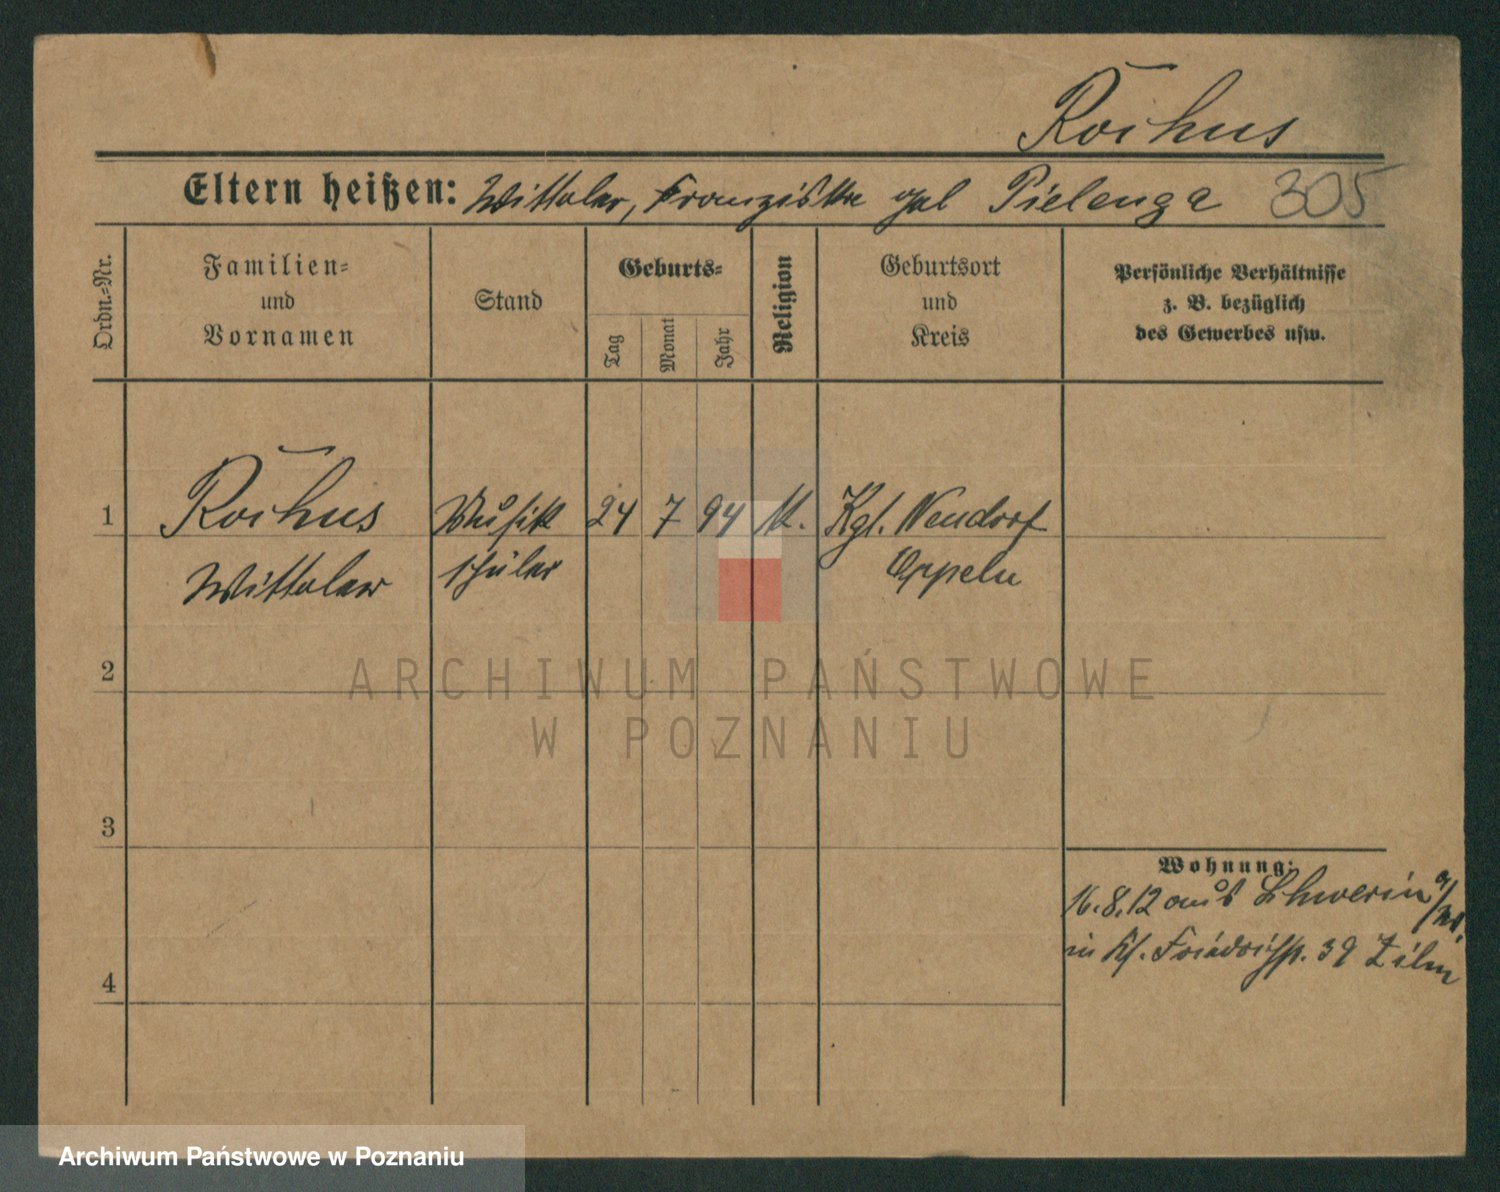 Roihus
Eltern heißen: Wittoler, Franziska geb Pielenga 305
Ordn.-Nr.
Familien-
und
Vornamen
Stand
Geburts-
Tag
Monat
Jahr
Religion
Geburtsort
und
Kreis
Persönliche Verhältnisse
z. B. bezüglich
des Gewerbes usw.
1 Roihus Musik 24 7 94 K. Kgl. Neudorf
schüler
Oppeln
2
ARCHIWUM PAŃSTWOWE
W POZNANIU
3
Wohnung:
16.8.12 aus Schwerin a/W.
in Friedrichstr. 39
4
Archiwum Państwowe w Poznaniu